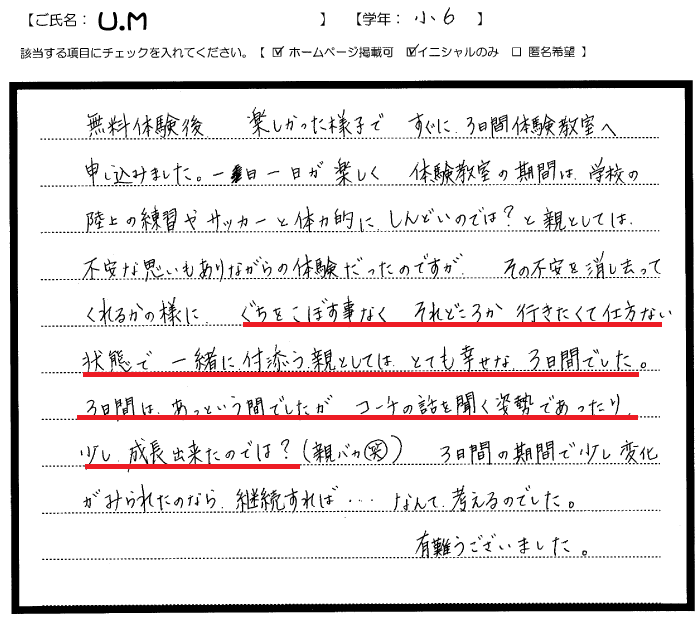 【ご氏名： U.M 】 【学年： 小6 】
該当する項目にチェックを入れてください。【 ☑ ホームページ掲載可 ☑イニシャルのみ □ 匿名希望 】
無料体験後 楽しかった様子で すぐに、3日間体験教室へ
申し込みました。一日一日が楽しく 体験教室の期間は、学校の
陸上の練習やサッカーと体力的に、しんどいのでは？と親としては、
不安な思いもありながらの体験だったのですが、 その不安を消し去って
くれるかの様に、 ぐちをこぼす事なく それどころか 行きたくて仕方ない
状態で 一緒に付添う親としては、とても幸せな、3日間でした。
3日間は、あっという間でしたが コーチの話を聞く姿勢であったり、
少し、成長出来たのでは？（親バカ㊤笑） 3日間の期間で少し変化
がみられたのなら、継続すれば・・・ なんて、考えるのでした。
有難うございました。